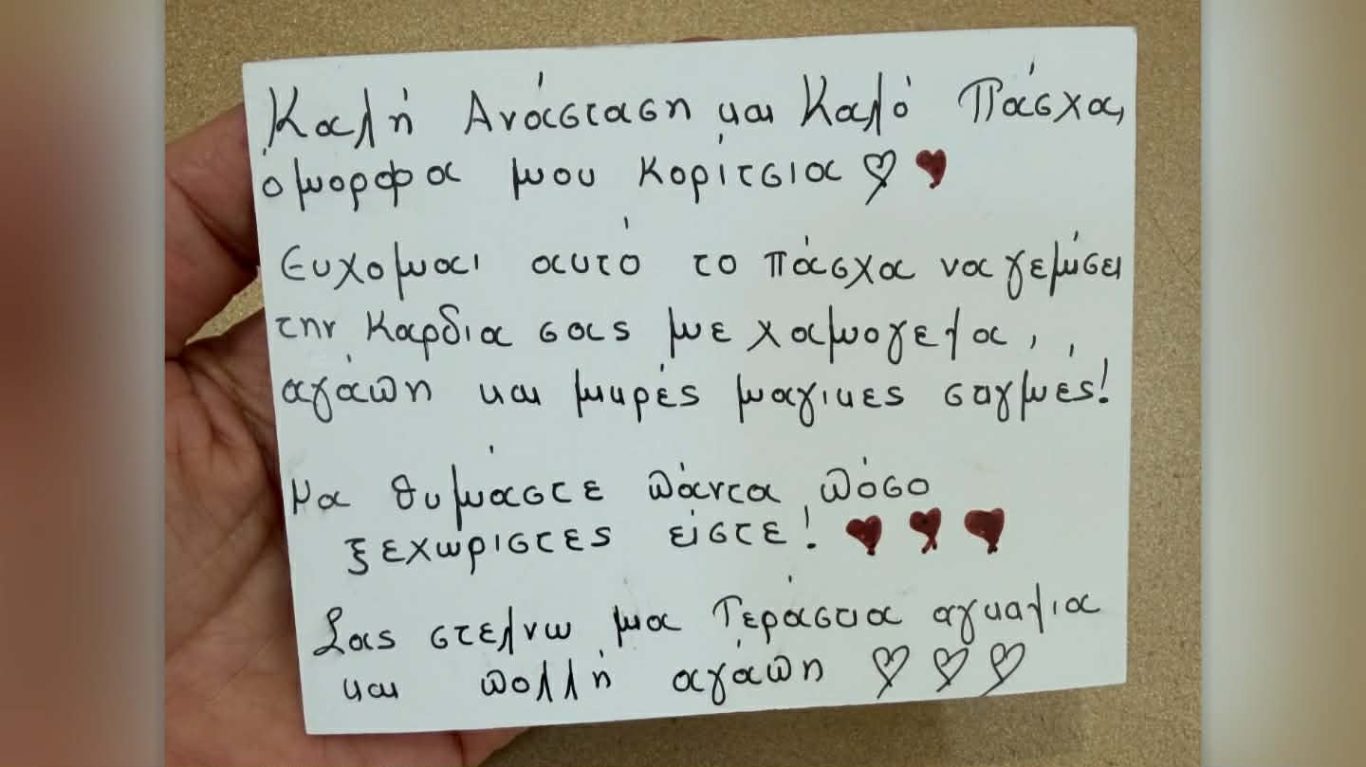 Καλή Ανάσταση και Καλό Πάσχα,
όμορφα μου κορίτσια ♡ ♥
Ευχομαι αυτό το πάσχα να γεμίσει
την καρδια σας με χαμογελα,
αγάπη και μικρές μαγικες στιγμές!
Να θυμάστε πάντα πόσο
ξεχωριστες είστε! ♥ ♥ ♥
Σας στελνω μια Τεράστια αγκαλια
και πολλή αγάπη ♡ ♡ ♡